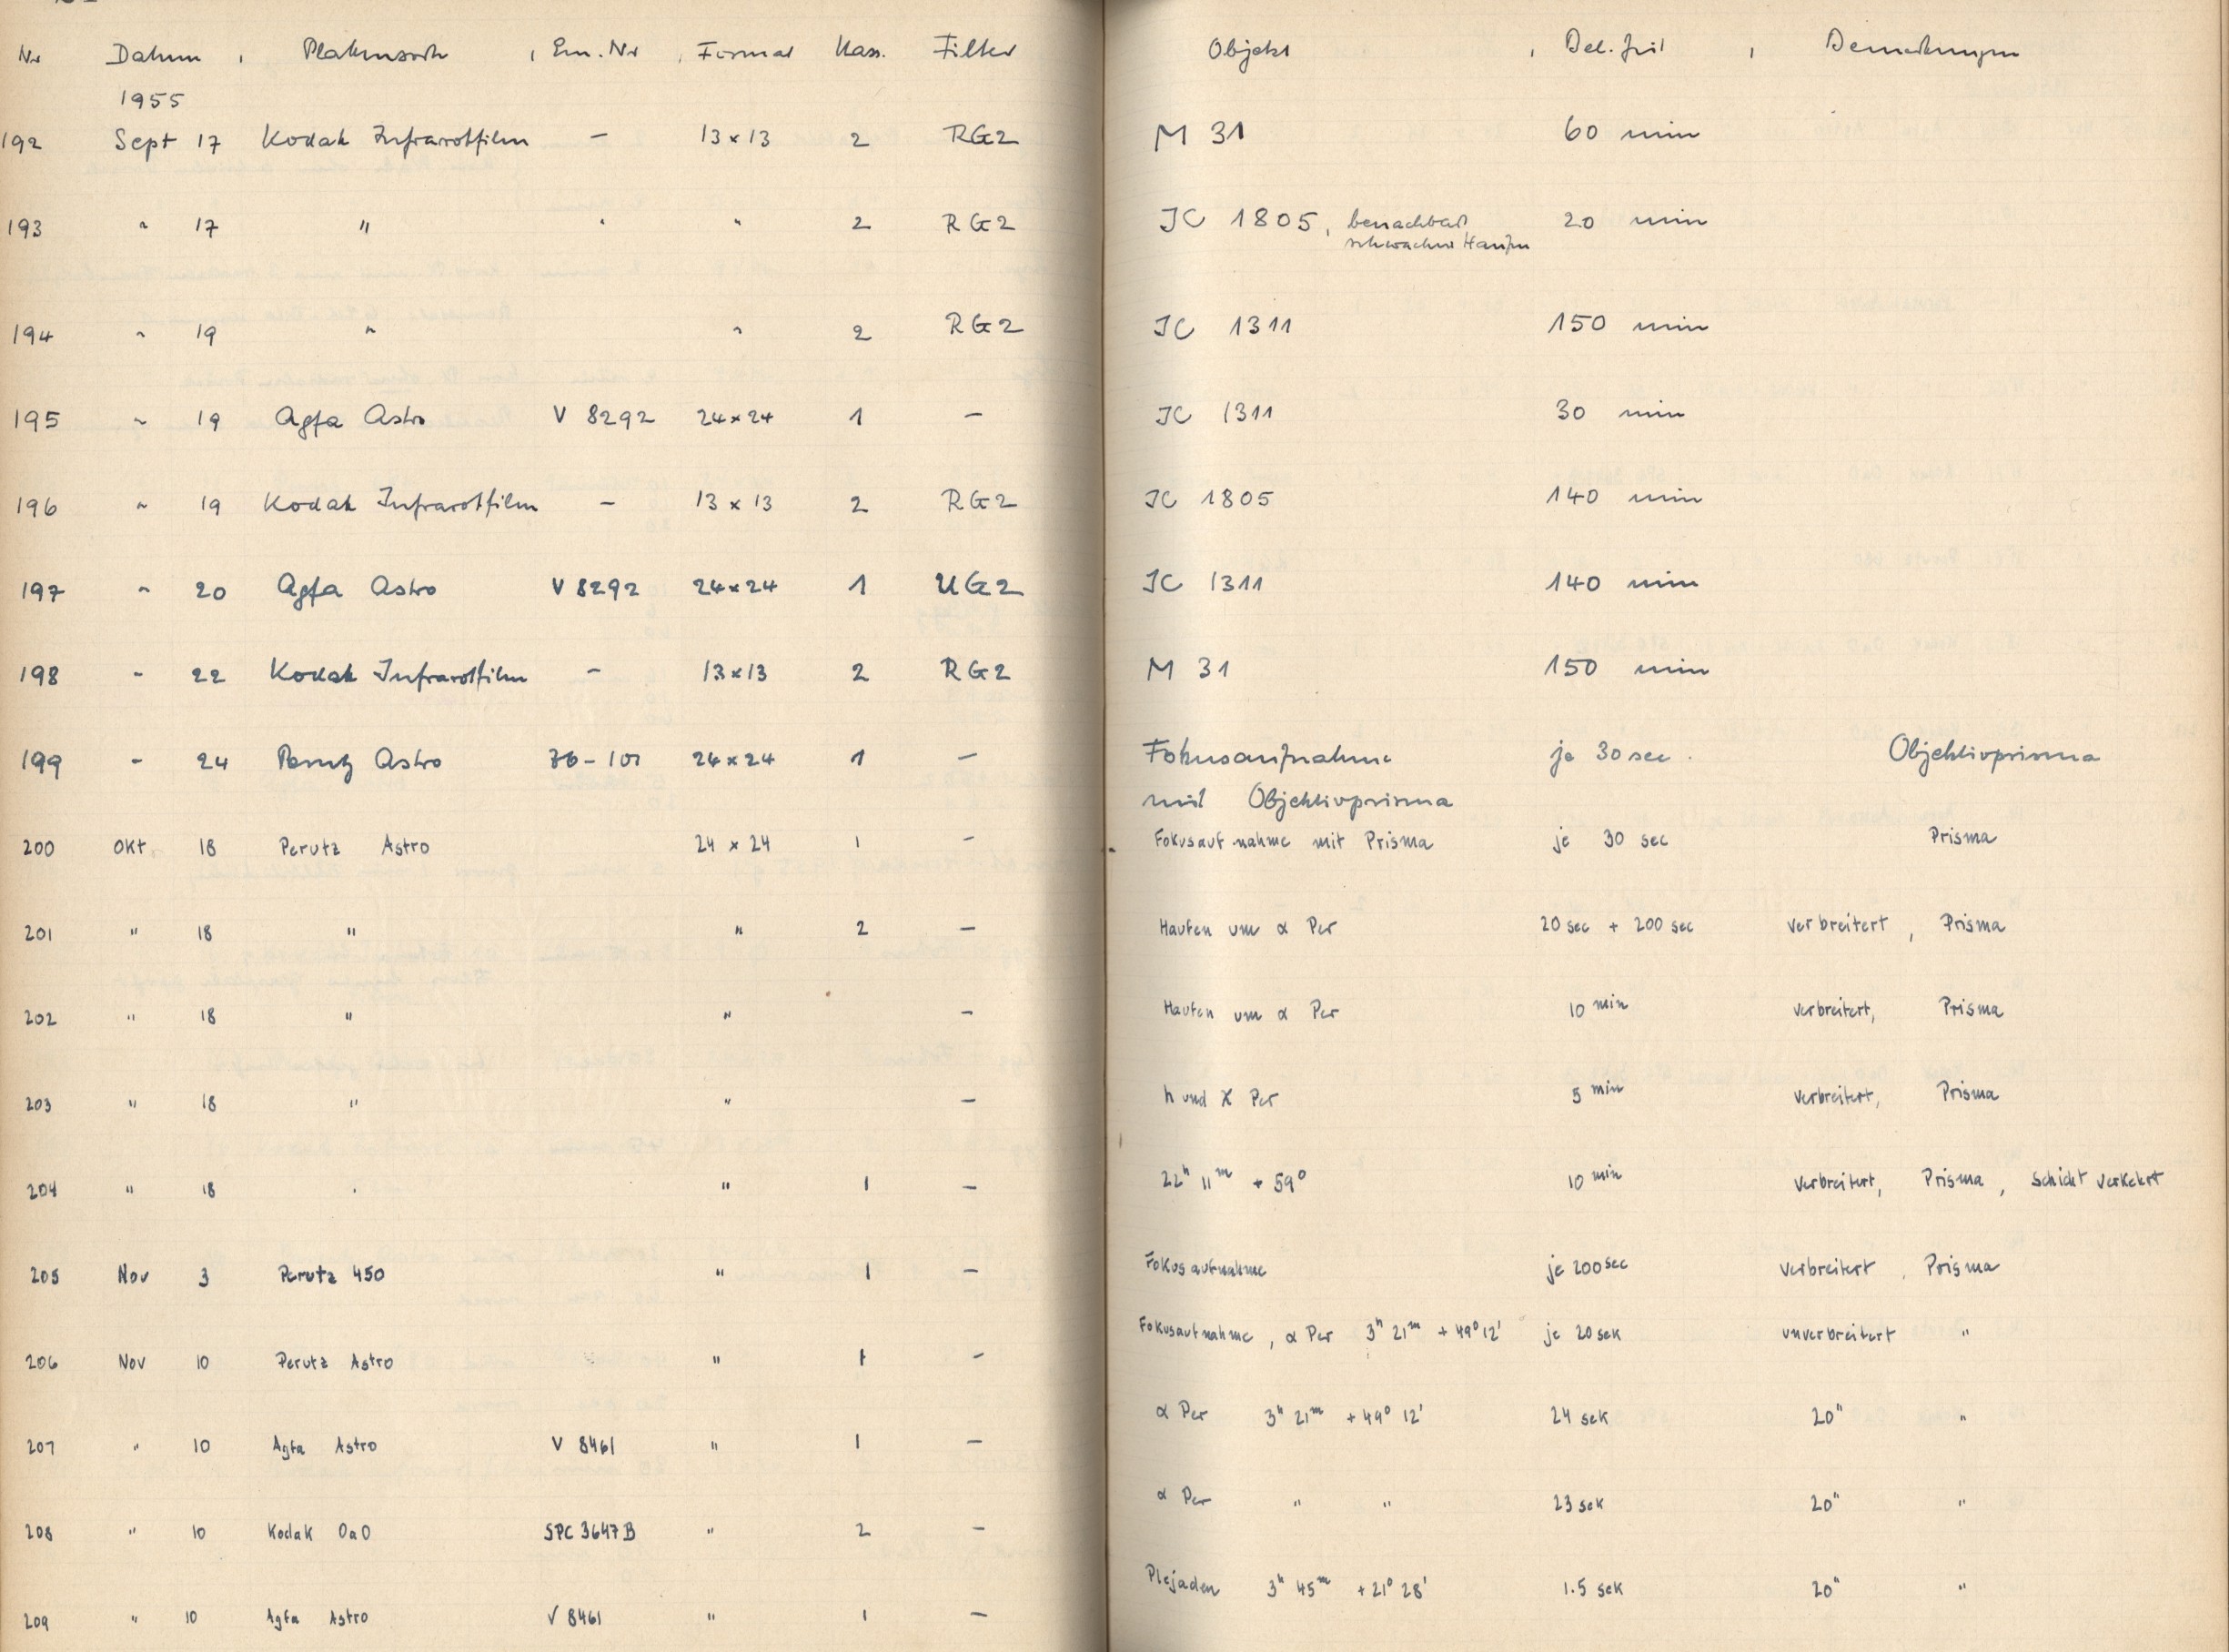 Nr Datum , Plattensorte , Em. Nr , Format Kass. Filter Objekt , Bel. Zeit , Bemerkungen
1955
192 Sept 17 Kodak Infrarotfilm – 13 x 13 2 RG2 M 31 60 min
193 " 17 " " " 2 RG2 IC 1805, benachbart 20 min
schwacher Haufen
194 " 19 " " 2 RG2 IC 1311 150 min
195 " 19 Agfa Astro V 8292 24 x 24 1 – IC 1311 30 min
196 " 19 Kodak Infrarotfilm – 13 x 13 2 RG2 IC 1805 140 min
197 " 20 Agfa Astro V 8292 24 x 24 1 UG2 IC 1311 140 min
198 " 22 Kodak Infrarotfilm – 13 x 13 2 RG2 M 31 150 min
199 " 24 Perutz Astro 24 x 24 1 – Fokusaufnahme je 30 sec. Objektivprisma
mit Objektivprisma
200 Okt 18 Perutz Astro 24 x 24 1 – Fokusaufnahme mit Prisma je 30 sec Prisma
201 " 18 " " 2 – Haufen um α Per 20 sec + 200 sec verbreitert, Prisma
202 " 18 " " – Haufen um α Per 10 min verbreitert, Prisma
203 " 18 " " – h und χ Per 5 min verbreitert, Prisma
204 " 18 " " 1 – 22h 11m + 59° 10 min verbreitert, Prisma, Schicht verkehrt
205 Nov 3 Perutz 450 " 1 – Fokusaufnahme je 200 sec verbreitert, Prisma
206 Nov 10 Perutz Astro " 1 – Fokusaufnahme, α Per 3h 21m + 49° 12' je 20 sek unverbreitert "
207 " 10 Agfa Astro V 8461 " 1 – α Per 3h 21m + 49° 12' 24 sek 20" "
208 " 10 Kodak OaO SPC 3647B " 2 – α Per " " 23 sek 20" "
209 " 10 Agfa Astro V 8461 " 1 – Plejaden 3h 45m + 21° 28' 1.5 sek 20" "